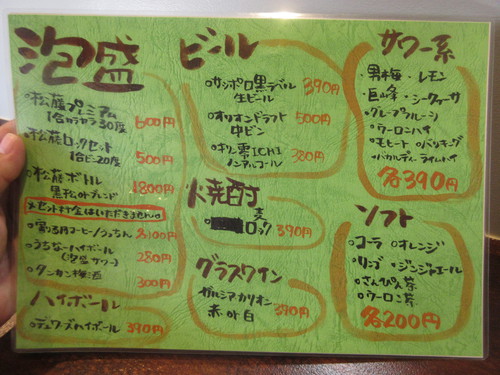 泡盛
松藤プレミアム
1合カラカラ30度 600円
松藤ロックセット
1合ビン20度 500円
松藤ボトル
黒松の木ブレンド 1800円
※セット料金はいただきません。
割る用コーヒー/うっちん 各100円
うちなーハイボール
(泡盛サワー) 280円
タンカン梅酒 300円
ハイボール
デュワーズハイボール 390円
ビール
サッポロ黒ラベル
生ビール 390円
オリオンドラフト
中ビン 500円
キリン零ICHI
ノンアルコール 380円
焼酎
麦
ロック 390円
グラスワイン
ガルシアカリオン
赤or白 390円
サワー系
男梅・レモン
巨峰・シークヮーサー
グレープフルーツ
ウーロンハイ
モヒート バクキング
バカルディーライムハイ
各390円
ソフト
コーラ オレンジ
リンゴ ジンジャエール
さんぴん茶
ウーロン茶
各200円